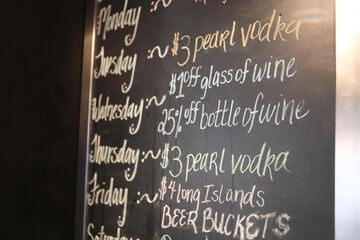 Monday
$3 pearl vodka
Tuesday
$1 off glass of wine
Wednesday
25% off bottle of wine
Thursday
$3 pearl vodka
Friday
$4 long Islands
BEER BUCKETS